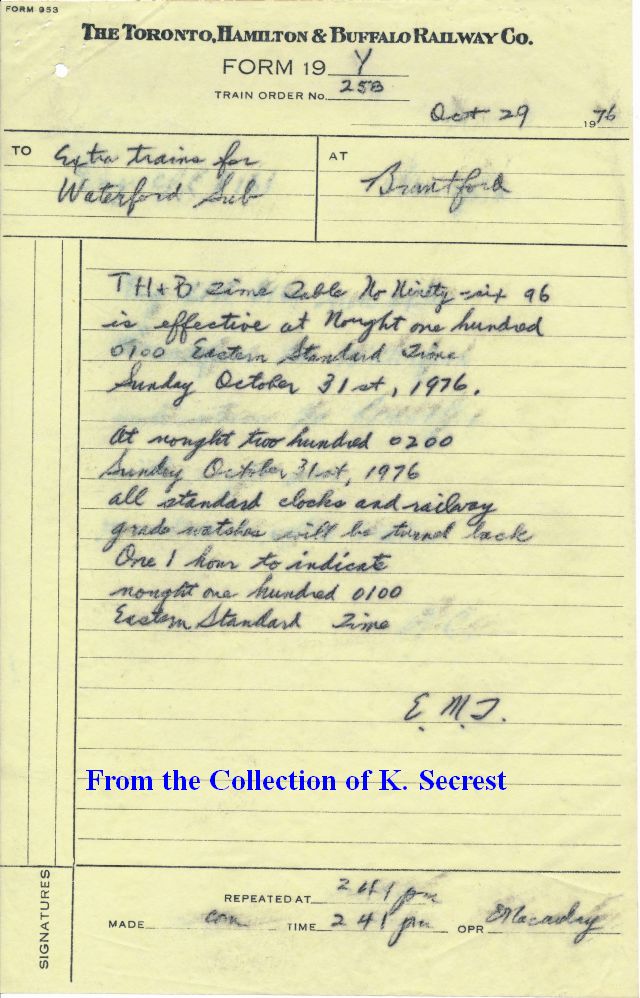 FORM 953
THE TORONTO, HAMILTON & BUFFALO RAILWAY CO.
FORM 19 Y
TRAIN ORDER No. 258
Oct 29 1976
TO Extra trains for
Waterford Sub
AT
Brantford
TH+B Time Table No Ninety-six 96
is effective at Nought one hundred
0100 Eastern Standard Time
Sunday October 31st, 1976.
At nought two hundred 0200
Sunday October 31st, 1976
all standard clocks and railway
grade watches will be turned back
One 1 hour to indicate
nought one hundred 0100
Eastern Standard Time
E. M. J.
From the Collection of K. Secrest
SIGNATURES
REPEATED AT 241 pm
MADE com TIME 241 pm OPR Macaulay